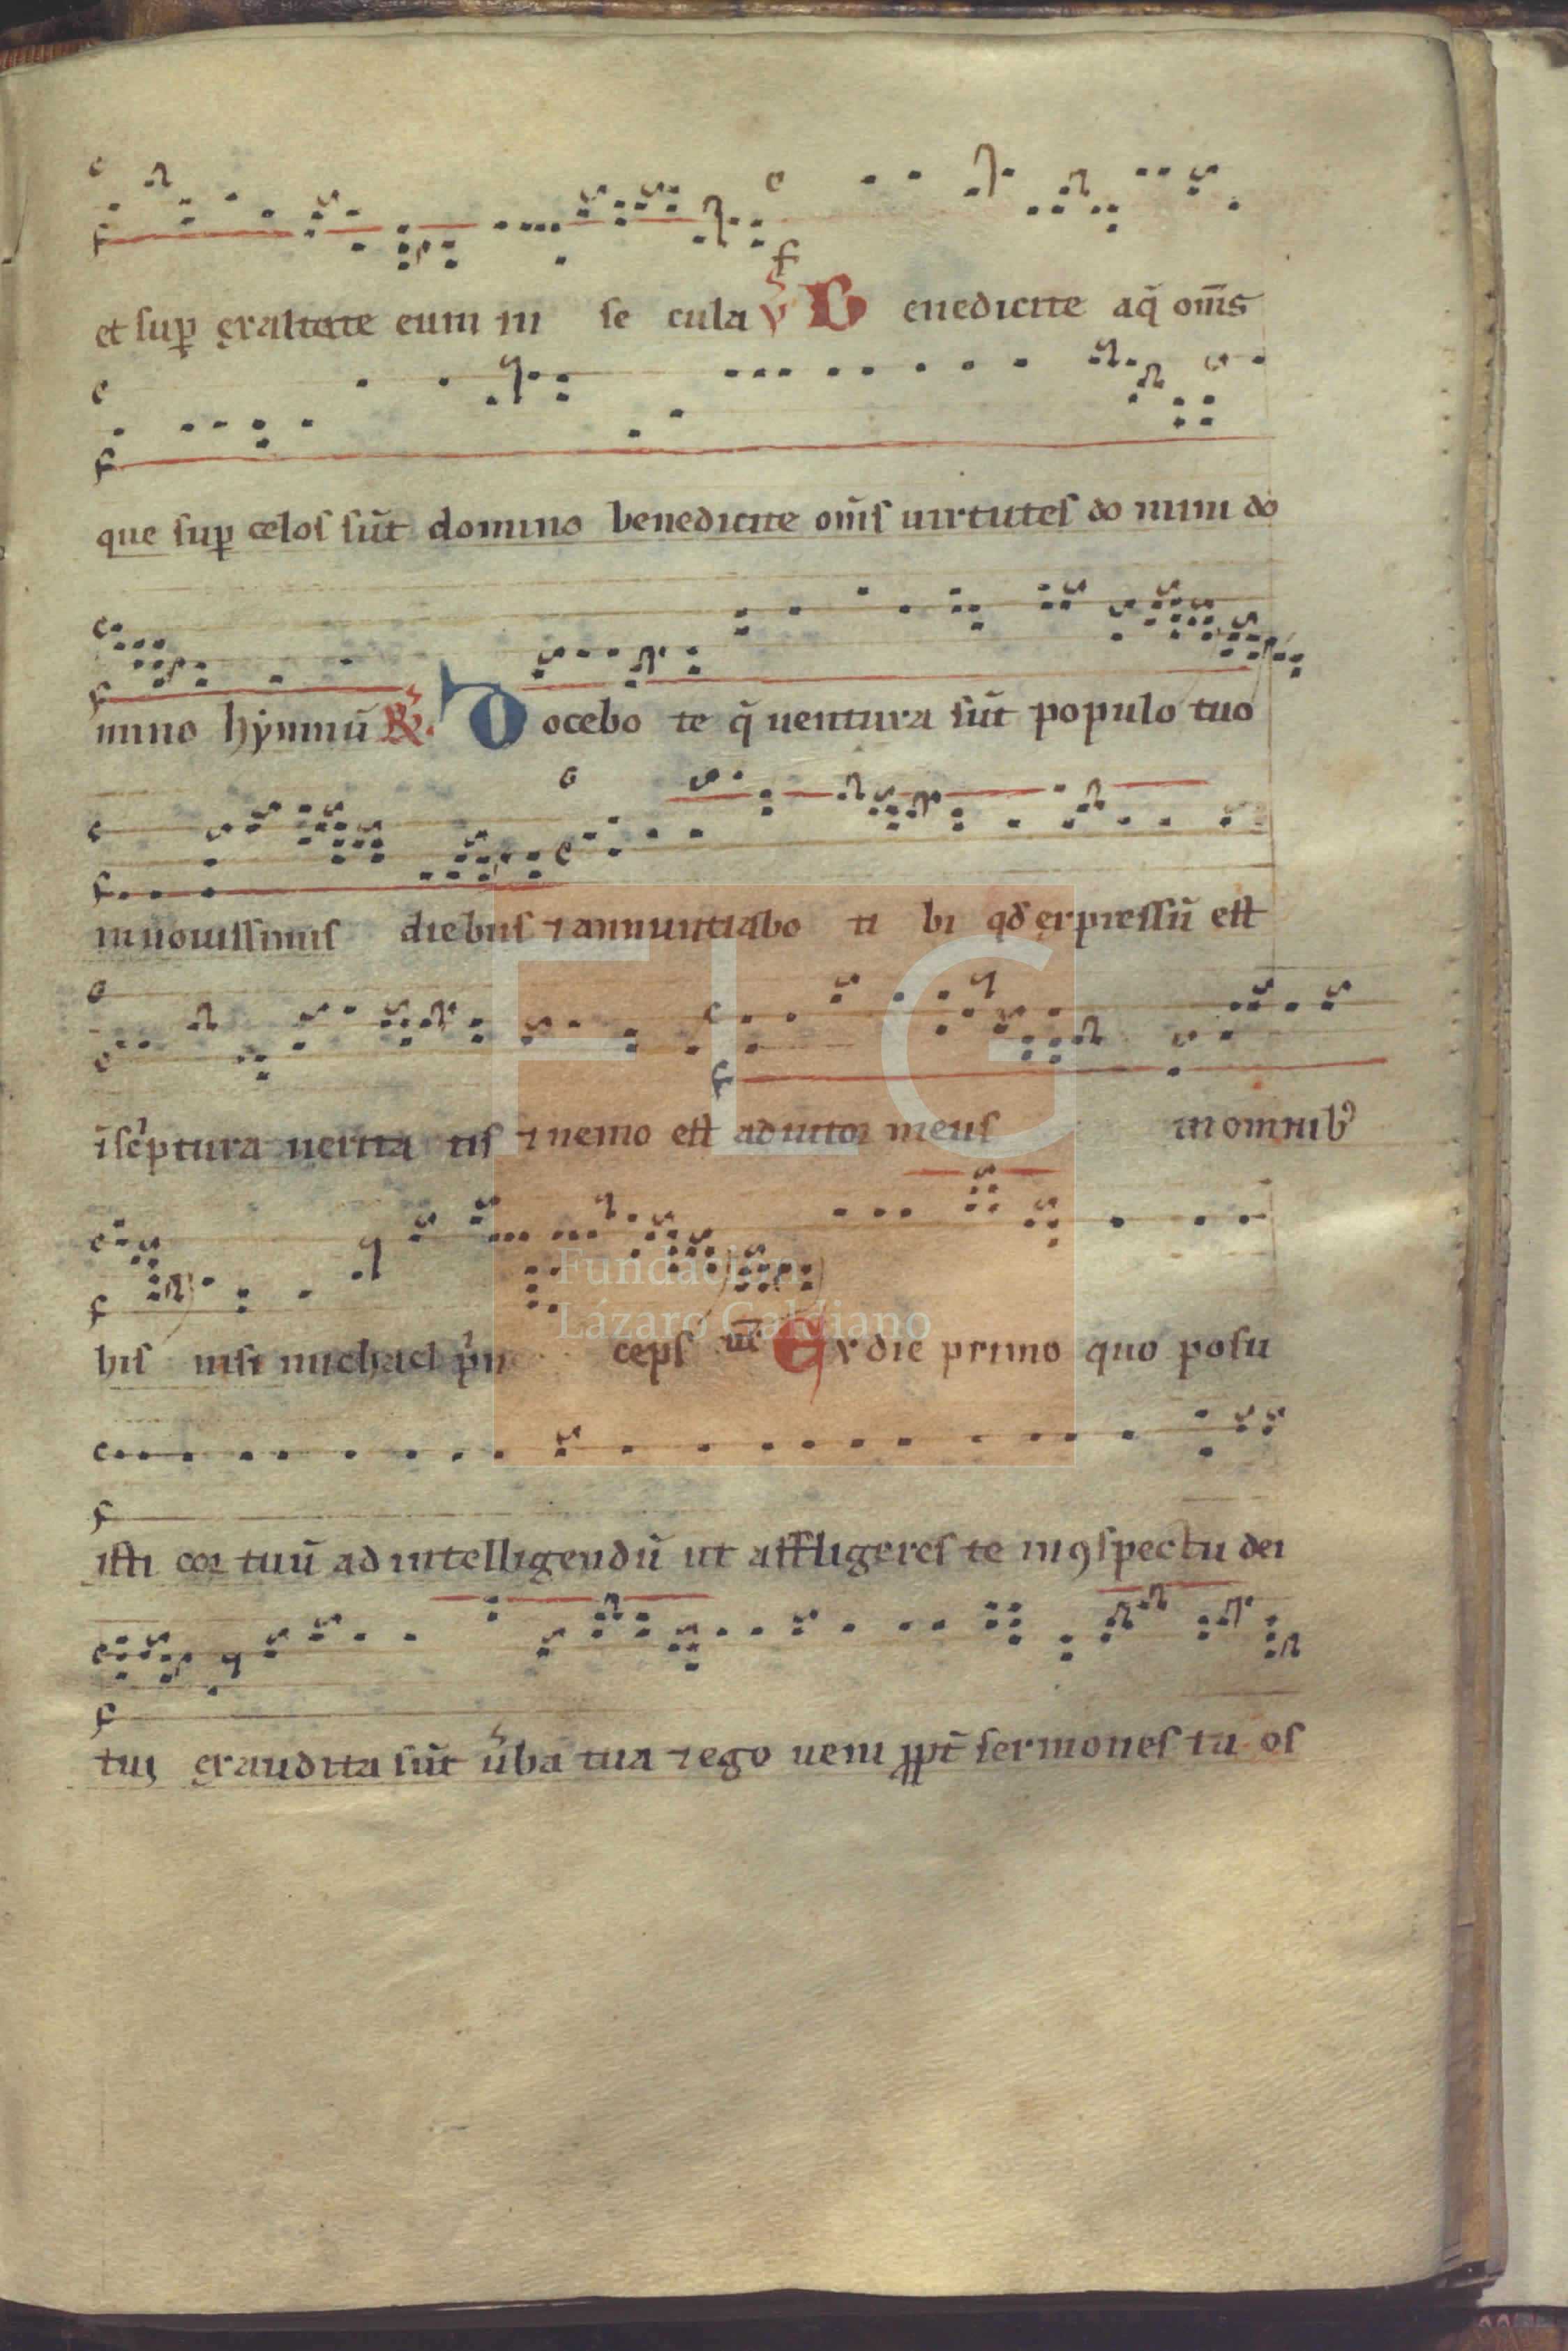 et sup exaltate eum in se cula ℣ B enedicite aq̄ om̄s
que sup celos sūt domino benedicite om̄s uirtutes do mini do
mino hẏmnū ℟. D ocebo te q̄ uentura sūt populo tuo
in nouissimis diebus ⁊ annuntiabo ti bi qd̄ expressū est
ī sc'ptura uerita tis ⁊ nemo est adiutor meus in omnib'
his nisi michael p'n ceps us̄ Ex die primo quo posu
isti cor tuū ad intelligendū ut affligeres te in ꝯspectu dei
tui exaudita sūt ūba tua ⁊ ego ueni ꝓpt̄ sermones tu os
FLG
Fundación
Lázaro Galdiano